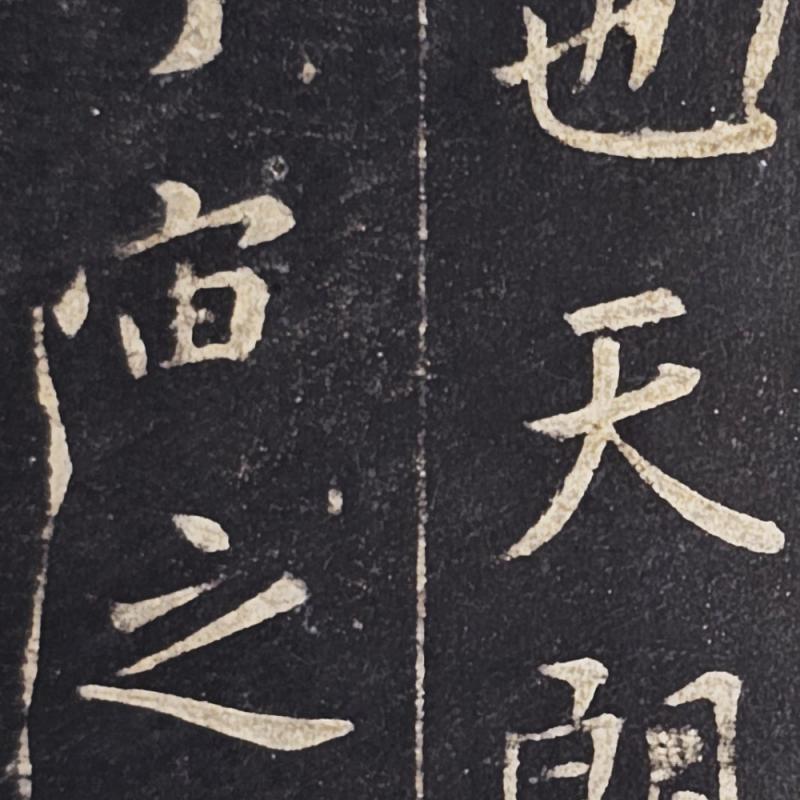 也天朗
宙之